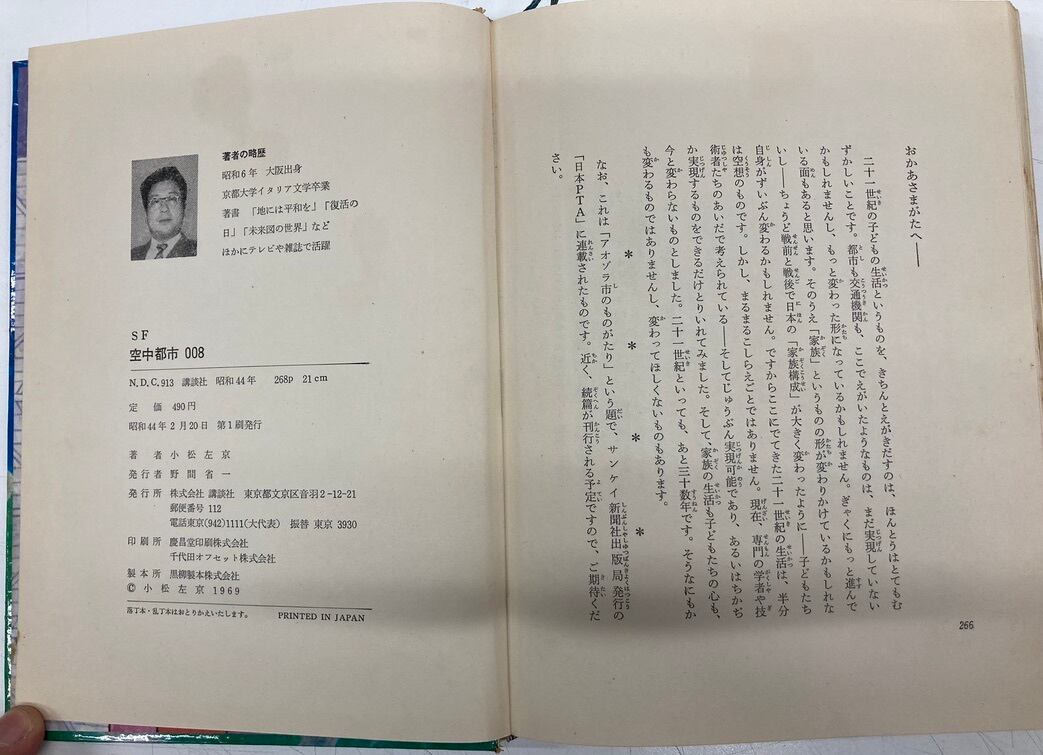 おかあさまがたへ——
二十一世紀の子どもの生活というものを、きちんとえがきだすのは、ほんとうはとてもむ
ずかしいことです。都市も交通機関も、ここでえがいたようなものは、まだ実現していない
かもしれませんし、もっと変わった形になっているかもしれません。ぎゃくにもっと進んで
いる面もあると思います。そのうえ「家族」というものの形が変わりかけているかもしれな
いし——ちょうど戦前と戦後で日本の「家族構成」が大きく変わったように——子どもたち
自身がずいぶん変わるかもしれません。ですからここにでてきた二十一世紀の生活は、半分
は空想のものです。しかし、まるまるこしらえごとではありません。現在、専門の学者や技
術者たちのあいだで考えられている——そしてじゅうぶん実現可能であり、あるいはちかぢ
か実現するものをできるだけとりいれてみました。そして、家族の生活も子どもたちの心も、
今と変わらないものとしました。二十一世紀といっても、あと三十数年です。そうなにもか
も変わるものではありませんし、変わってほしくないものもあります。
* * * *
なお、これは「アオゾラ市のものがたり」という題で、サンケイ新聞社出版局発行の
「日本PTA」に連載されたものです。近く、続篇が刊行される予定ですので、ご期待くだ
さい。
266
著者の略歴
昭和6年 大阪出身
京都大学イタリア文学卒業
著書 「地には平和を」「復活の
日」「未来図の世界」など
ほかにテレビや雑誌で活躍
SF
空中都市 008
N.D.C.913 講談社 昭和44年 268p 21cm
定 価 490円
昭和44年2月20日 第1刷発行
著 者 小松左京
発行者 野間省一
発行所 株式会社 講談社 東京都文京区音羽2-12-21
郵便番号 112
電話東京(942)1111(大代表) 振替 東京 3930
印刷所 慶昌堂印刷株式会社
千代田オフセット株式会社
製本所 黒柳製本株式会社
© 小松左京 1969
落丁本・乱丁本はおとりかえいたします。 PRINTED IN JAPAN